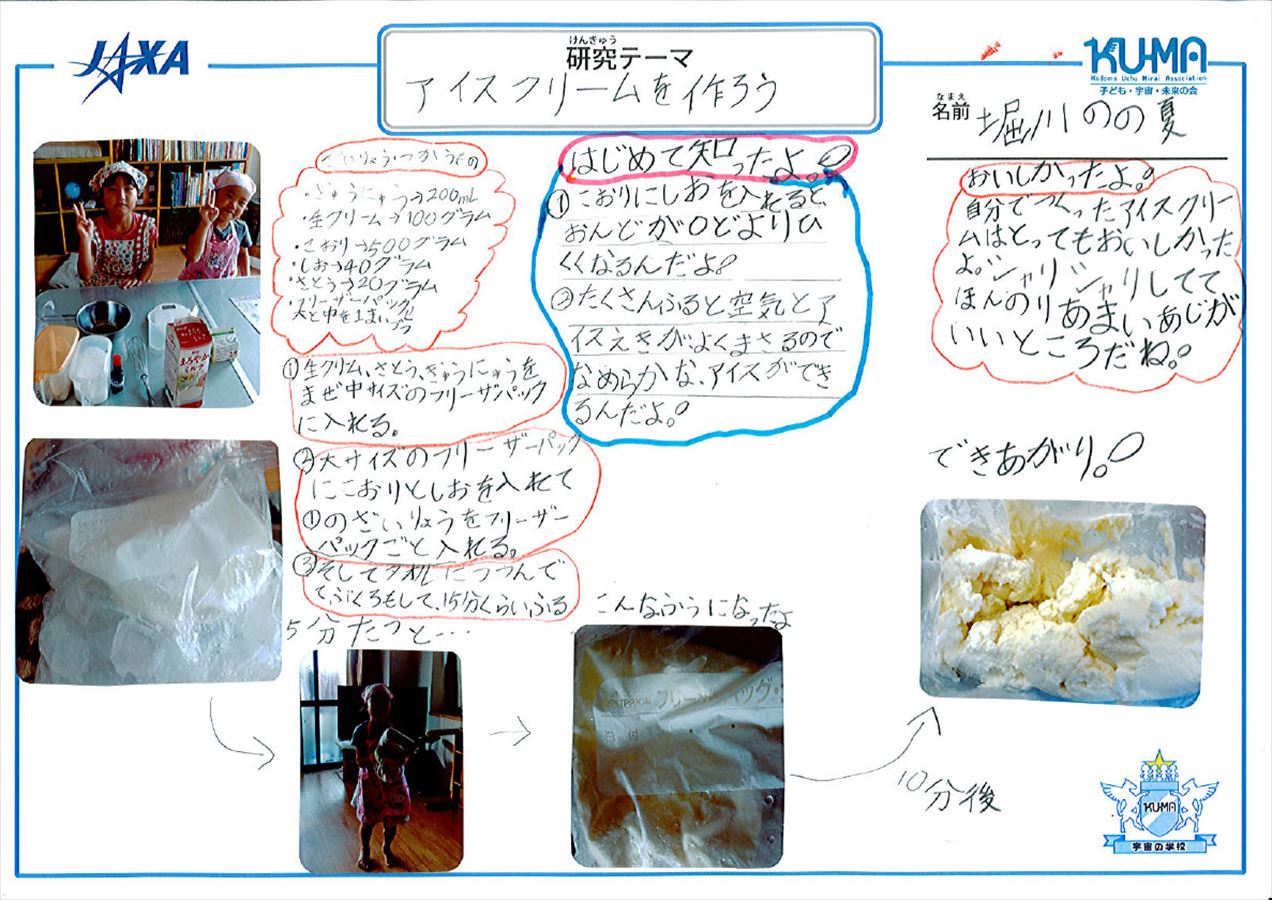 JAXA
けんきゅう
研究テーマ
アイスクリームを作ろう
KU-MA
Kodomo Uchu Mirai Association
子ども・宇宙・未来の会
なまえ
名前 堀川のの夏
ざいりょう・つかうもの
・ぎゅうにゅう→200mL
・生クリーム→100グラム
・こおり→500グラム
・しお→40グラム
・さとう→20グラム
・フリーザーパック
大と中を1まいづつ
①生クリム、さとう、ぎゅうにゅうを
まぜ中サイズのフリーザパック
に入れる。
②大サイズのフリーザーパック
にこおりとしおを入れて
①のざいりょうをフリーザー
パックごと入れる。
③そしてタオルにつつんで
てぶくろもして、15分くらいふる
5分たつと…
はじめて知ったよ。
①こおりにしおを入れると、
おんどが0どよりひ
くくなるんだよ。
②たくさんふると空気とア
イスえきがよくまざるので
なめらかな、アイスができ
るんだよ。
おいしかったよ。
自分でつくったアイスクリー
ムはとってもおいしかった
よ。シャリシャリしてて
ほんのりあまいあじが
いいところだね。
こんなふうになったよ
BESTPRICE フリーザーバッグ・
日付
10分後
できあがり。
まろやか
ミルク
KU-MA
宇宙の学校